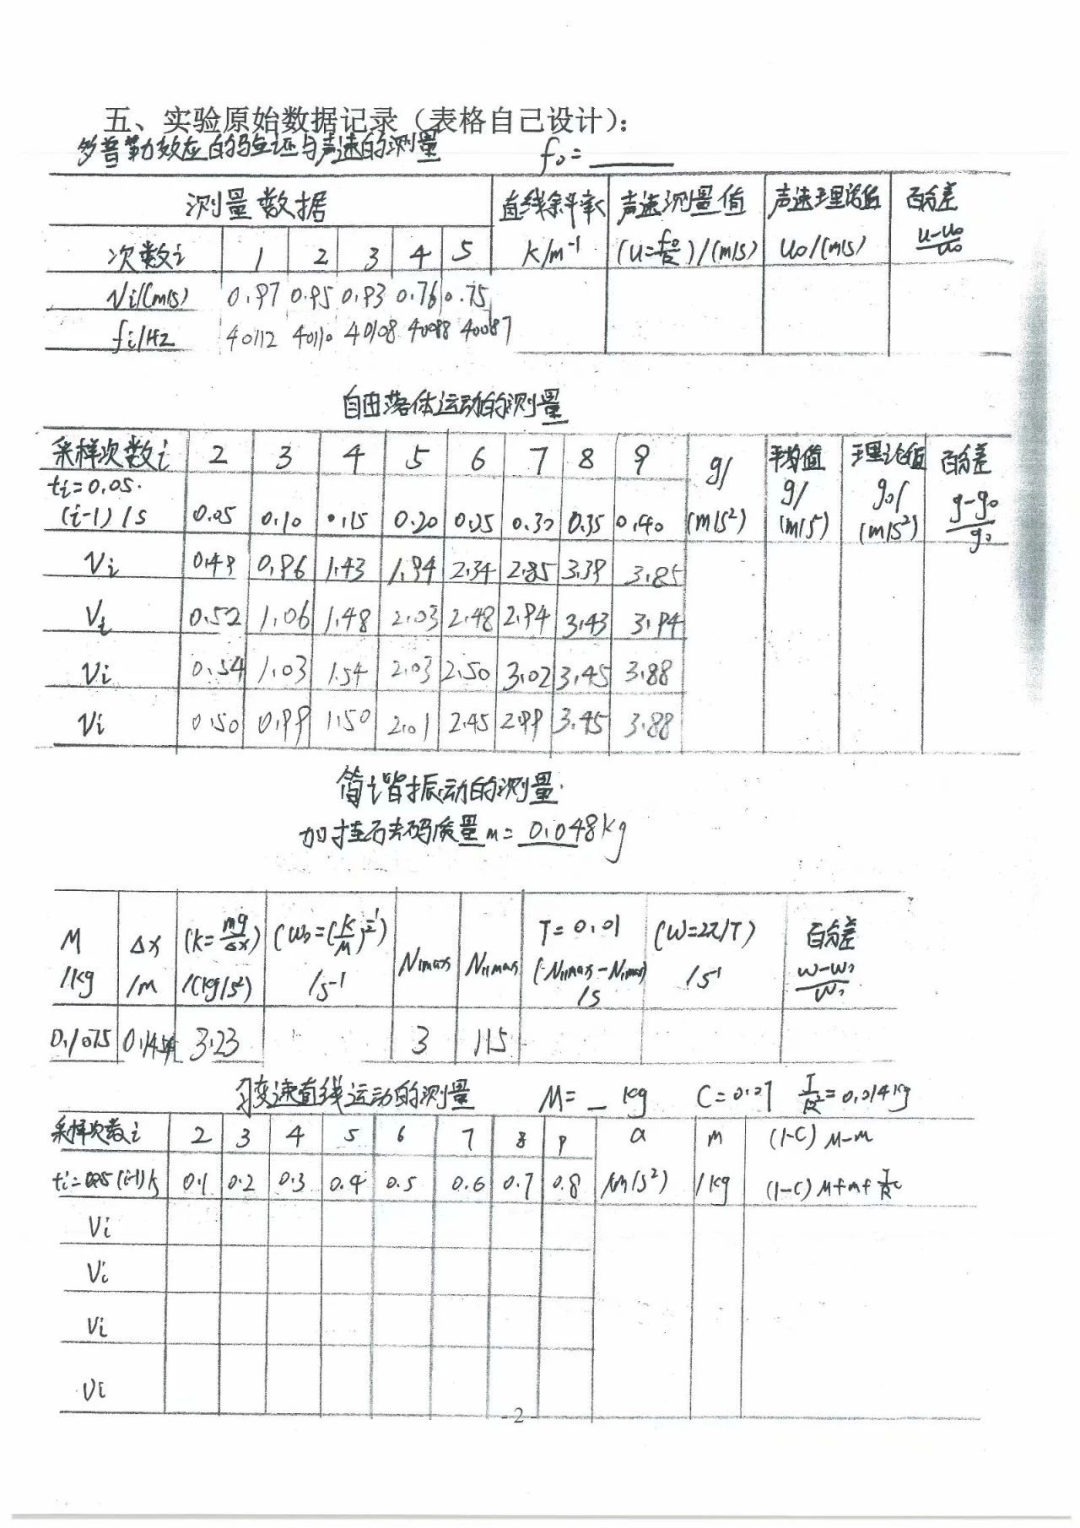 五、实验原始数据记录（表格自己设计）：
多普勒效应的验证与声速的测量 f₀=
测量数据 直线斜率 声速测量值 声速理论值 百分差
次数i 1 2 3 4 5 k/m⁻¹ (u=f₀/k)/(m/s) u₀/(m/s) u-u₀/u₀
Vi/(m/s) 0.97 0.95 0.93 0.76 0.75
fi/Hz 40112 40110 40108 40088 40087
自由落体运动的测量
采样次数i 2 3 4 5 6 7 8 9 g/ 平均值 理论值 百分差
ti=0.05· g/ g₀/ g-g₀/g₀
(i-1)/s 0.05 0.10 0.15 0.20 0.25 0.30 0.35 0.40 (m/s²) (m/s²) (m/s²)
Vi 0.49 0.96 1.43 1.94 2.34 2.85 3.39 3.85
Vi 0.52 1.06 1.48 2.03 2.48 2.94 3.43 3.94
Vi 0.54 1.03 1.54 2.03 2.50 3.02 3.45 3.88
Vi 0.50 0.99 1.50 2.01 2.45 2.99 3.45 3.88
简谐振动的测量
加挂砝码质量m=0.048kg
M Δx (k=mg/Δx) (ω₀=(k/M)^½) N₁max N₁₁max T=0.01 (ω=2π/T) 百分差
/kg /m /(kg/s²) /s⁻¹ (N₁₁max-N₁max)/s /s⁻¹ ω-ω₀/ω₀
0.1075 3.23 3 115
匀变速直线运动的测量 M=_kg C=0.07 I/R²=0.014kg
采样次数i 2 3 4 5 6 7 8 9 a m (1-C)M-m
ti=0.05(i-1)/s 0.1 0.2 0.3 0.4 0.5 0.6 0.7 0.8 /(m/s²) /kg (1-C)M+m+I/R²
Vi
Vi
Vi
Vi
-2-